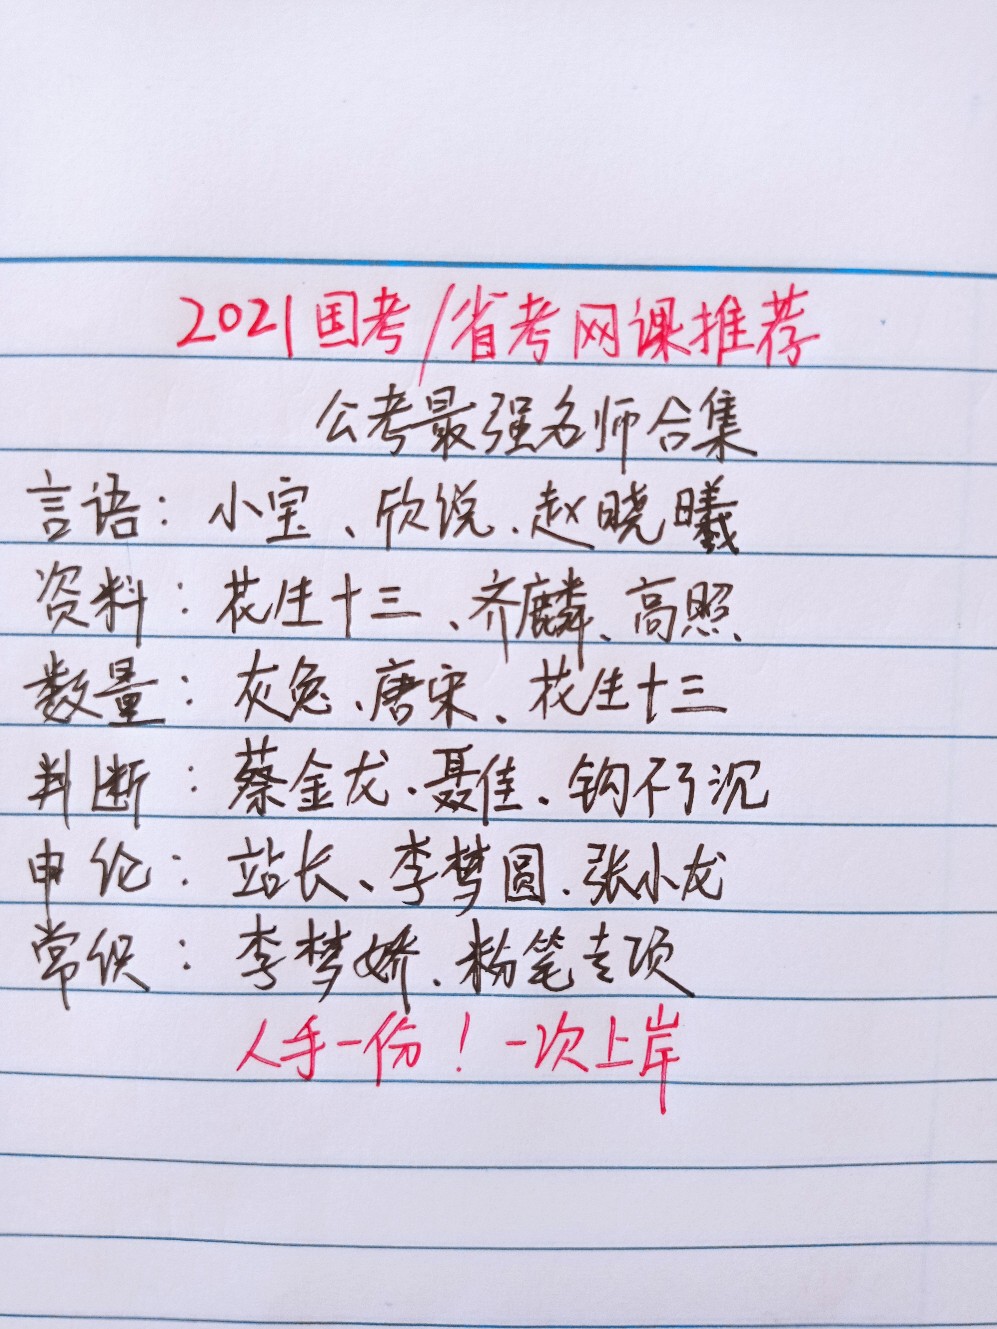 2021国考/省考网课推荐
公考最强名师合集
言语：小宝、欣说、赵晓曦
资料：花生十三、齐麟、高照、
数量：灰兔、唐宋、花生十三
判断：蔡金龙、聂佳、钩不沉
申论：站长、李梦圆、张小龙
常识：李梦娇、粉笔专项
人手一份！一次上岸